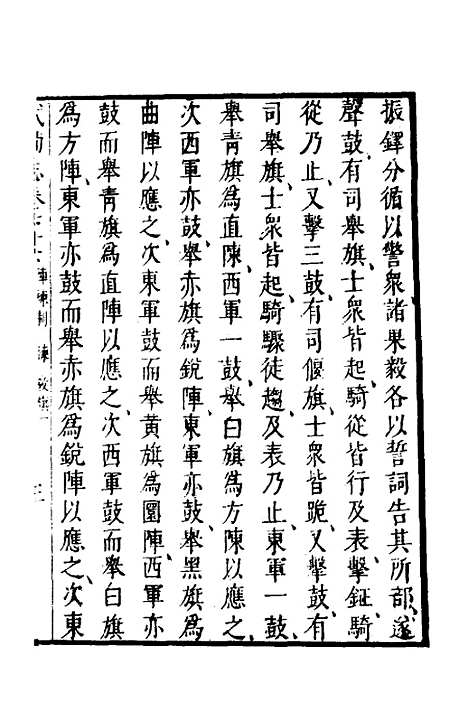 振鐸分循以警衆、諸果毅各以誓詞告其所部、遂
聲鼓、有司舉旗、士衆皆起、騎從皆行、及表、擊鉦、騎
從乃止、又擊三鼓、有司偃旗、士衆皆跪、又擊鼓、有
司舉旗、士衆皆起、騎驟徒趨、及表乃止、東軍一鼓、
舉青旗爲直陳、西軍一鼓、舉白旗爲方陳以應之、
次西軍亦鼓、舉赤旗爲銳陣、東軍亦鼓、舉黑旗爲
曲陣以應之、次東軍鼓而舉黃旗爲圜陣、西軍亦
鼓而舉青旗爲直陣以應之、次西軍鼓而舉白旗
爲方陣、東軍亦鼓而舉赤旗爲銳陣以應之、次東
武備志卷 陣練制 練 教旗一